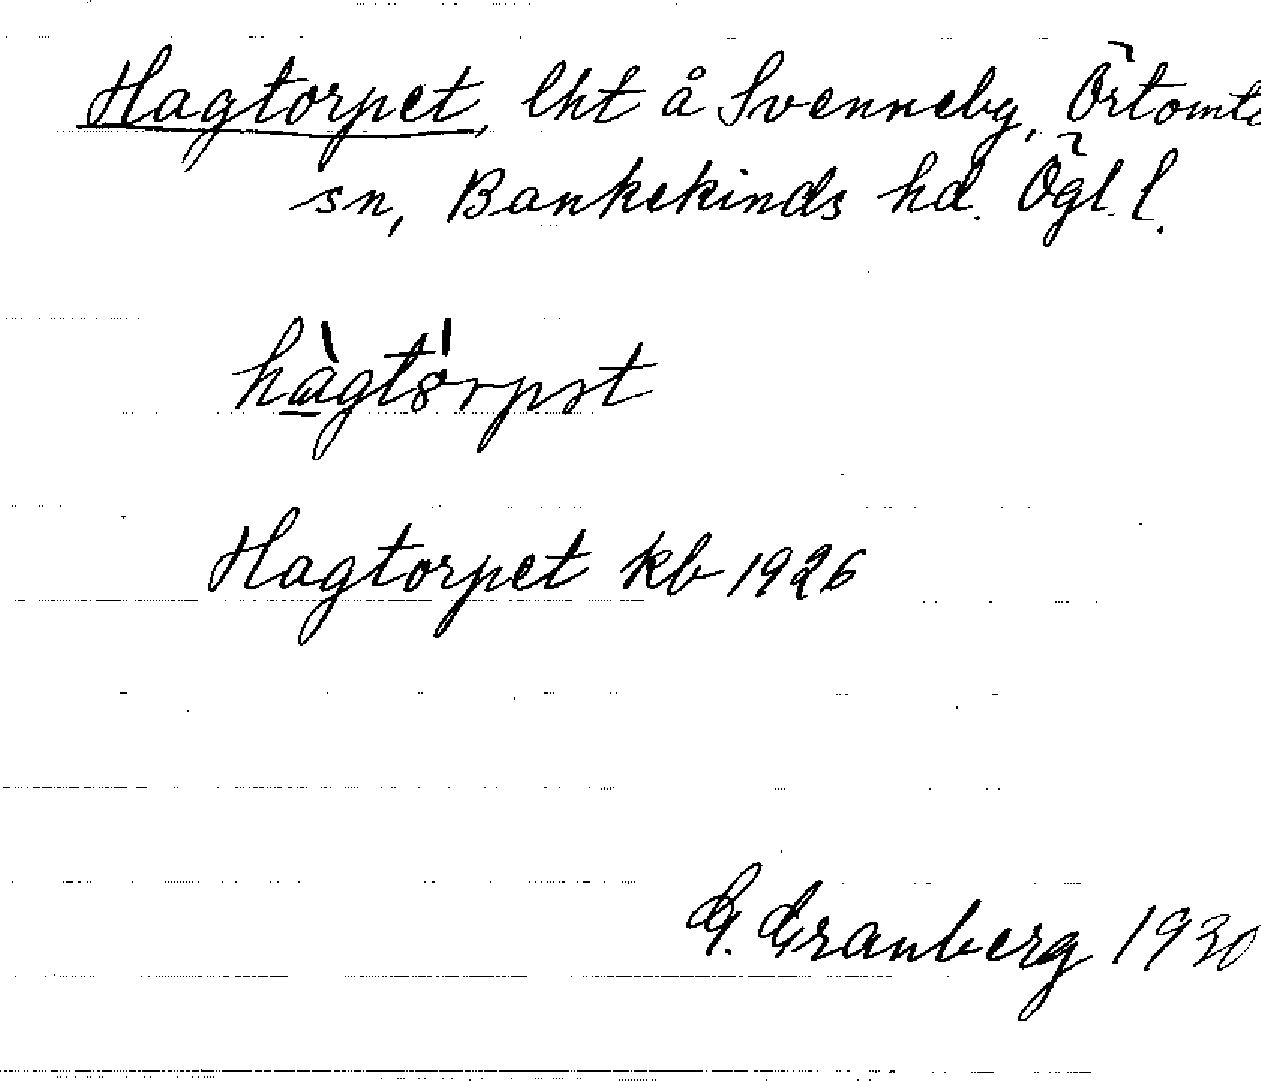 Hagtorpet, lht å Svenneby, Örtomta
sn, Bankekinds hd. Ögl. l.
Hagtorpet kb 1926
G. Granberg 1930